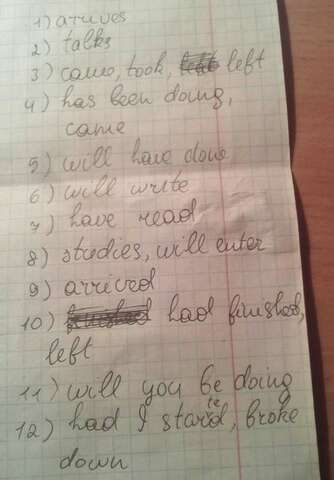 1) arrives
2) talks
3) came, took, left
4) has been doing,
came
5) will have done
6) will write
7) have read
8) studies, will enter
9) arrived
10) had finished,
left
11) will you be doing
12) had I started, broke
down